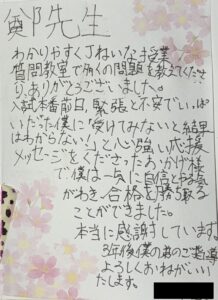 鄭先生
わかりやすくていねいな授業
質問教室で多くの問題を教えてくださ
り、ありがとうございました。
入試本番前日、緊張と不安でいっぱ
いだった僕に「受けてみないと結果
はわからない!」と心強い応援
メッセージをくださったおかげ様
で僕は一気に自信とやる気
がわき、合格を勝ち取る
ことができました。
本当に感謝しています。
3年後僕の弟のご指導
よろしくおねがいい
たします。